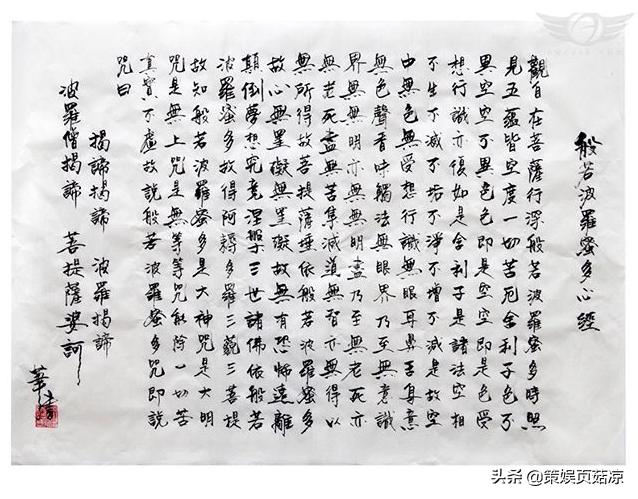 般若波羅蜜多心經
觀自在菩薩行深般若波羅蜜多時照
見五蘊皆空度一切苦厄舍利子色不
異空空不異色色即是空空即是色受
想行識亦復如是舍利子是諸法空相
不生不滅不垢不淨不增不減是故空
中無色無受想行識無眼耳鼻舌身意
無色聲香味觸法無眼界乃至無意識
界無無明亦無無明盡乃至無老死亦
無老死盡無苦集滅道無智亦無得以
無所得故菩提薩埵依般若波羅蜜多
故心無罣礙無罣礙故無有恐怖遠離
顛倒夢想究竟涅槃三世諸佛依般若
波羅蜜多故得阿耨多羅三藐三菩提
故知般若波羅蜜多是大神咒是大明
咒是無上咒是無等等咒能除一切苦
真實不虛故說般若波羅蜜多咒即說
咒曰
揭諦揭諦 波羅揭諦
波羅僧揭諦 菩提薩婆訶
头条 @策娱页菇凉